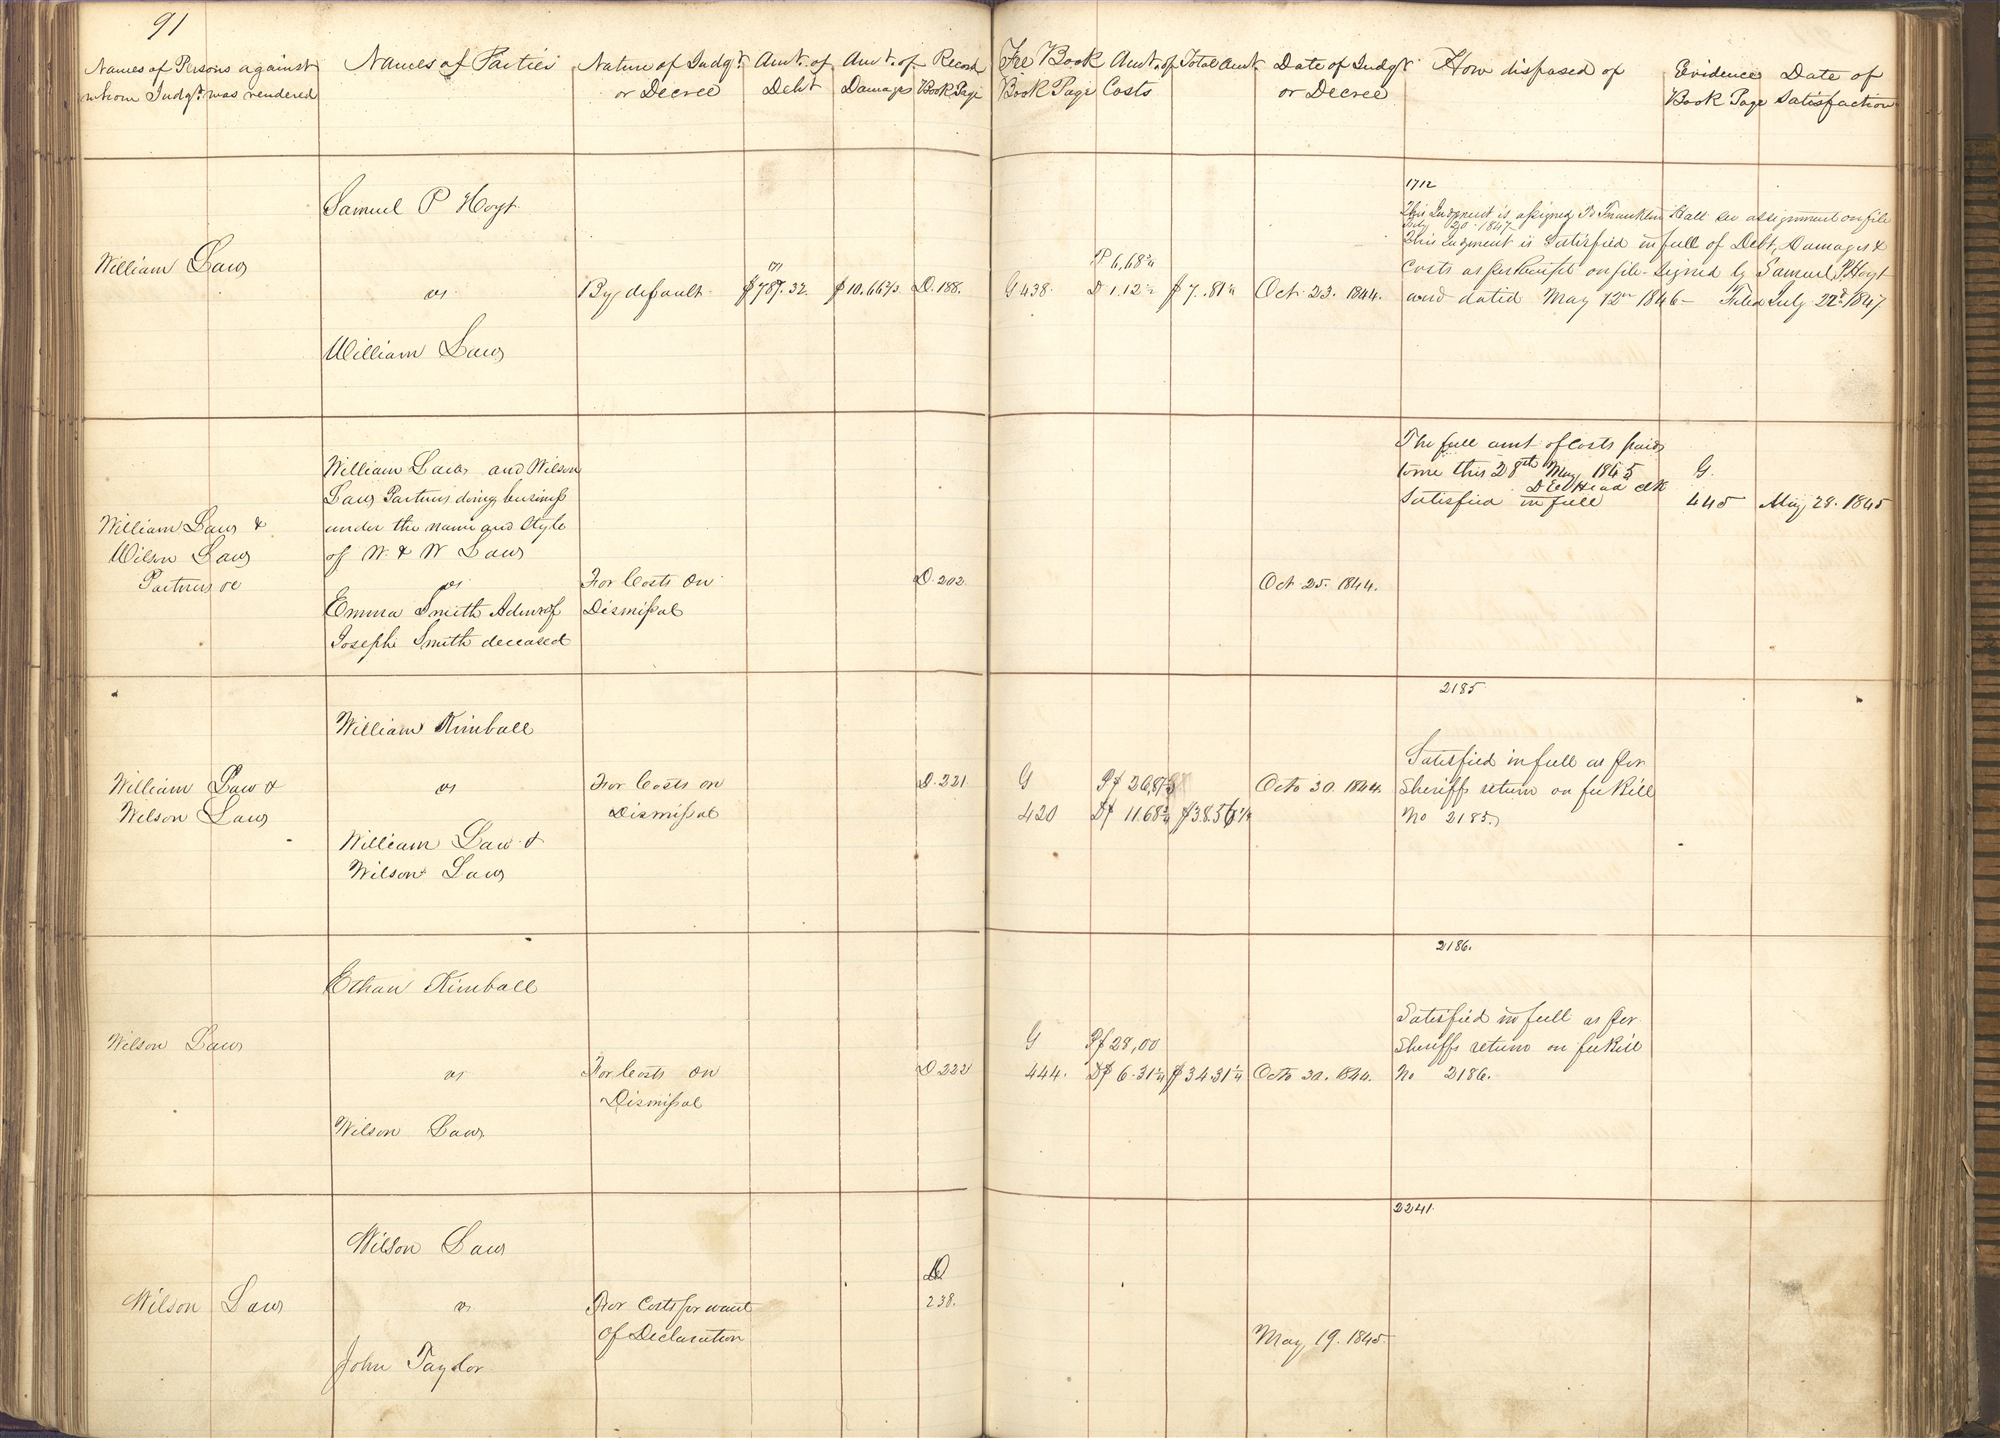 91
Names of Persons against
whom Judgt. was rendered
Names of Parties
Nature of Judgt.
or Decree
Amt. of
Debt
Amt. of
Damages
Record
Book Page
Fee Book
Book Page
Amt. of
Costs
Total Amt.
Date of Judgt
or Decree
How disposed of
Evidence
Book Page
Date of
Satisfaction
William Law
Samuel P Hoyt
vs
William Law
By default
$787.32.
$10.66 2/3
D. 188.
G 438.
P 6,68 3/4
D 1.12 1/2
$7.81 1/4
Oct. 23. 1844.
1712
This Judgment is assigned To Franklin Hall see assignment on file
July 20. 1847
This Judgment is Satisfied in full of Debt, Damages &
Costs as per Receipt on file - signed by Samuel P. Hoyt
and dated May 12th 1846 - Filed July 22d 1847
William Law &
Wilson Law
Partners &c
William Law and Wilson
Law Partners doing business
under the name and Style
of W. & W Law
vs
Emma Smith Admx of
Joseph Smith deceased
For Costs on
Dismissal
D. 202
Oct. 25. 1844.
The full amt of Costs paid
to me this 28th May 1845
D E Head clk
Satisfied in full
G.
445
May 28. 1845
William Law &
Wilson Law
William Kimball
vs
William Law &
Wilson Law
For Costs on
Dismissal
D. 221
G
420
P$ 26,87 1/2
D$ 11.68 3/4
$38.56 1/4
Octo 30. 1844.
2185
Satisfied in full as per
Sheriffs return on fee bill
No 2185.
Wilson Law
Ethan Kimball
vs
Wilson Law
For Costs on
Dismissal
D. 222
G
444.
P$ 28,00
D$ 6.31 1/4
$34 31 1/4
Octo 30. 1844.
2186.
Satisfied in full as per
Sheriffs return on fee bill
No 2186.
Wilson Law
Wilson Law
vs
John Taylor
For Costs for want
of Declaration
D
238.
May 19. 1845
2241.